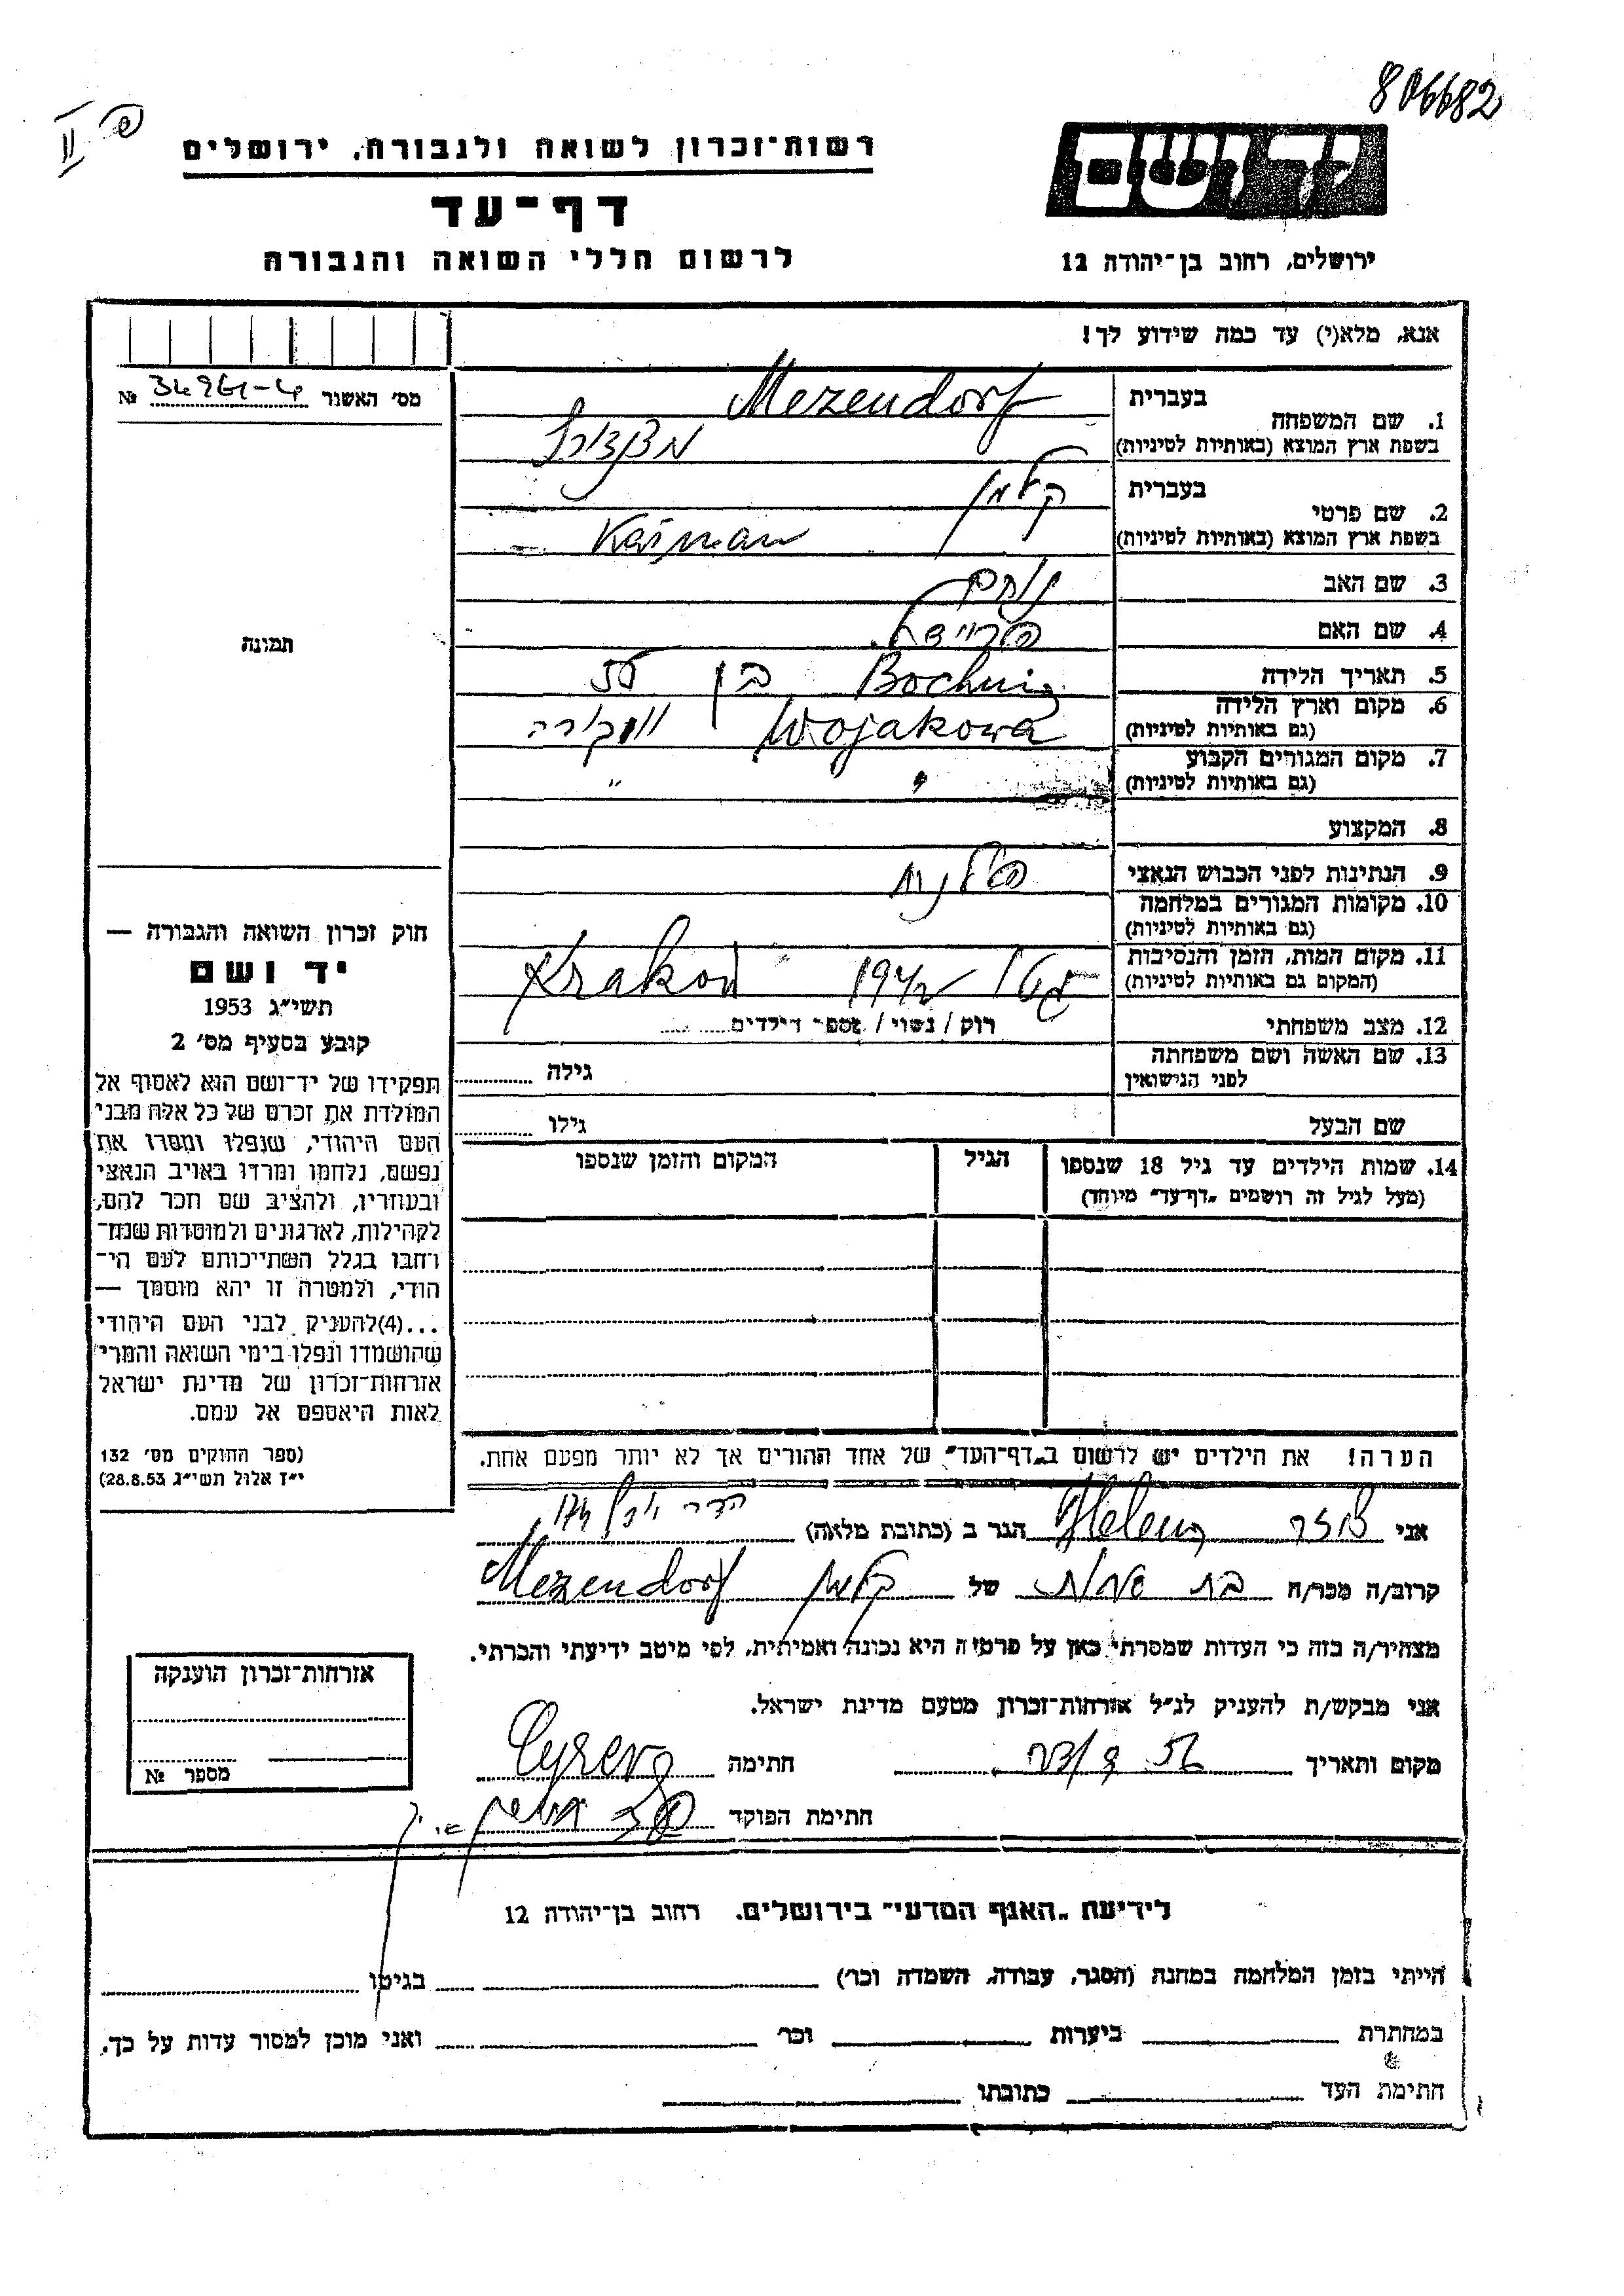 806682
רשות־זכרון לשואה ולגבורה, ירושלים
יד ושם
דף־עד
לרשום חללי השואה והגבורה
ירושלים, רחוב בן־יהודה 12
אנא, מלא(י) עד כמה שידוע לך!
מס' האשור №
בעברית Mezendorf
1. שם המשפחה
בשפת ארץ המוצא (באותיות לטיניות)
בעברית קלמן
2. שם פרטי
בשפת ארץ המוצא (באותיות לטיניות) Kalman
3. שם האב נחום
4. שם האם
5. תאריך הלידה Bochnia בן
6. מקום וארץ הלידה Wojakowa
(גם באותיות לטיניות)
7. מקום המגורים הקבוע " "
(גם באותיות לטיניות)
8. המקצוע
9. הנתינות לפני הכבוש הנאצי פולנית
10. מקומות המגורים במלחמה
(גם באותיות לטיניות)
11. מקום המות, הזמן והנסיבות גטו 1942 Krakow
(המקום גם באותיות לטיניות)
12. מצב משפחתי רוק / נשוי / מספר הילדים
13. שם האשה ושם משפחתה
לפני הנישואין גילה
שם הבעל גילו
14. שמות הילדים עד גיל 18 שנספו הגיל המקום והזמן שנספו
(מעל לגיל זה רושמים „דף־עד" מיוחד)
הערה! את הילדים יש לרשום ב„דף־העד" של אחד ההורים אך לא יותר מפעם אחת.
תמונה
חוק זכרון השואה והגבורה —
יד ושם
תשי"ג 1953
קובע בסעיף מס' 2
תפקידו של יד־ושם הוא לאסוף אל
המולדת את זכרם של כל אלה מבני
העם היהודי, שנפלו ומסרו את
נפשם, נלחמו ומרדו באויב הנאצי
ובעוזריו, ולהציב שם וזכר להם,
לקהילות, לארגונים ולמוסדות שנח־
רבו בגלל השתייכותם לעם הי־
הודי, ולמטרה זו יהא מוסמך —
...(4)להעניק לבני העם היהודי
שהושמדו ונפלו בימי השואה והמרי
אזרחות־זכרון של מדינת ישראל
לאות היאספם אל עמם.
(ספר החוקים מס' 132
י"ז אלול תשי"ג 28.8.53)
אני Helena הגר ב (כתובת מלאה)
קרוב/ה מכר/ה בת של קלמן Mezendorf
מצהיר/ה בזה כי העדות שמסרתי כאן על פרטיה היא נכונה ואמיתית, לפי מיטב ידיעתי והכרתי.
אני מבקש/ת להעניק לנ"ל אזרחות־זכרון מטעם מדינת ישראל.
מקום ותאריך חתימה
חתימת הפוקד
אזרחות־זכרון הוענקה
מספר №
לידיעת „האגף המדעי" בירושלים, רחוב בן־יהודה 12
הייתי בזמן המלחמה במחנה (הסגר, עבודה, השמדה וכו') בגיטו
במחתרת ביערות וכו' ואני מוכן למסור עדות על כך.
חתימת העד כתובתו